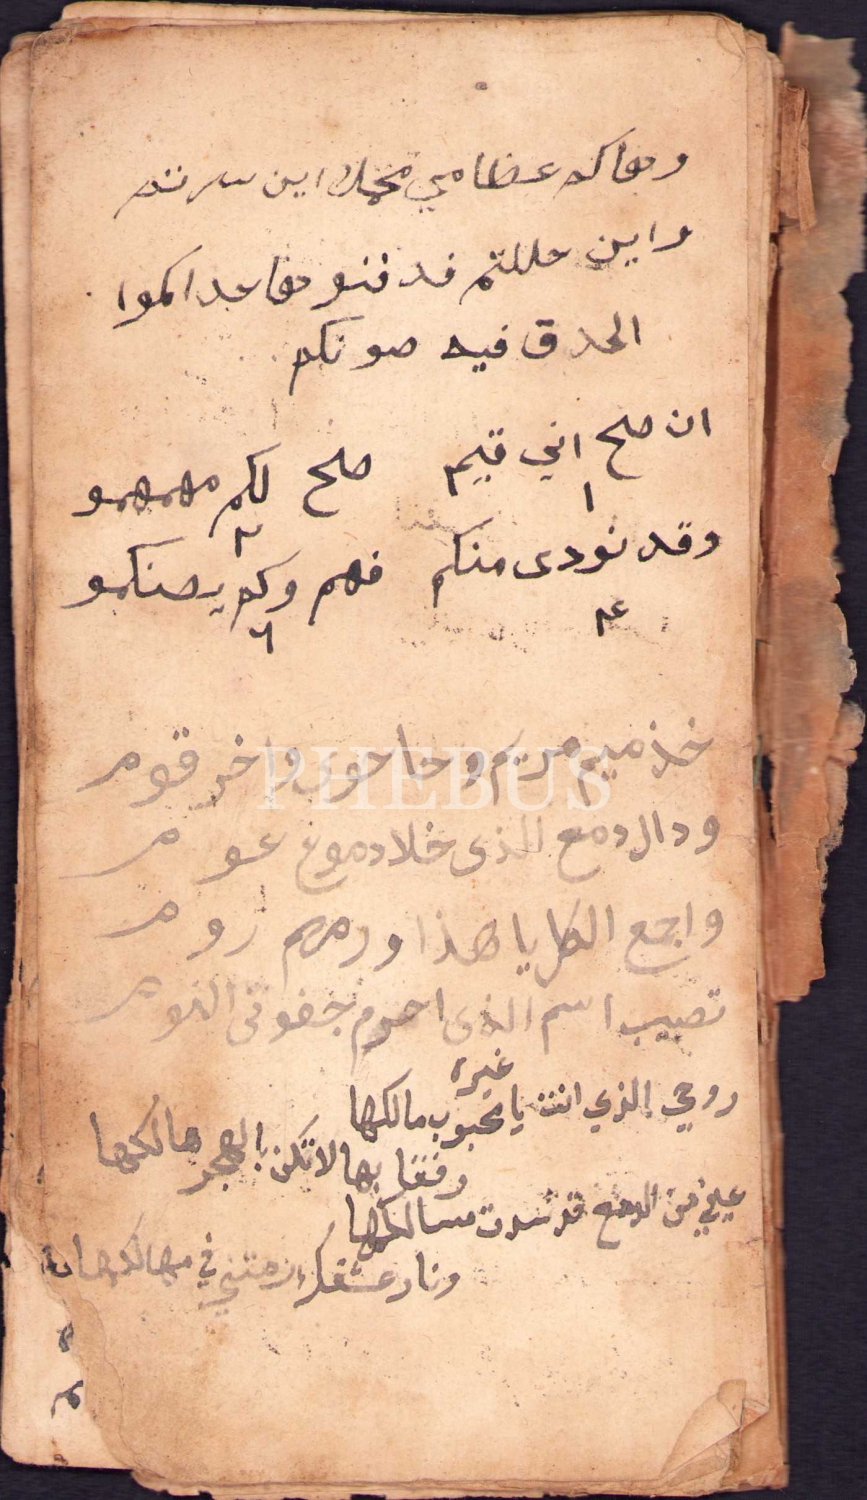 وهاكم عظامي محملا اين سرتم
واين حللتم فدفنوها حداكموا
الحدق فيه صونكم
ان صلح اني قيم صلح لكم مهمهمو
١ ٢
وقد نودي منكم فهم وكم يصنكمو
٤ ٦
خذ ميم مريم وحا حوى واخر قوم
ودال دمع الذى خلا دموع عوم
واجمع الكل يا هذا ورمهم روم
تصيب اسم الذى احرم جفونى النوم
غيره
روحي الذي انت يا محبوب مالكها
رفقا بها لا تكن بالهجر هالكها
عيني من الدمع قد سدت مسالكها
ونار عشقك رمتني في مهالكها
PHEBUS